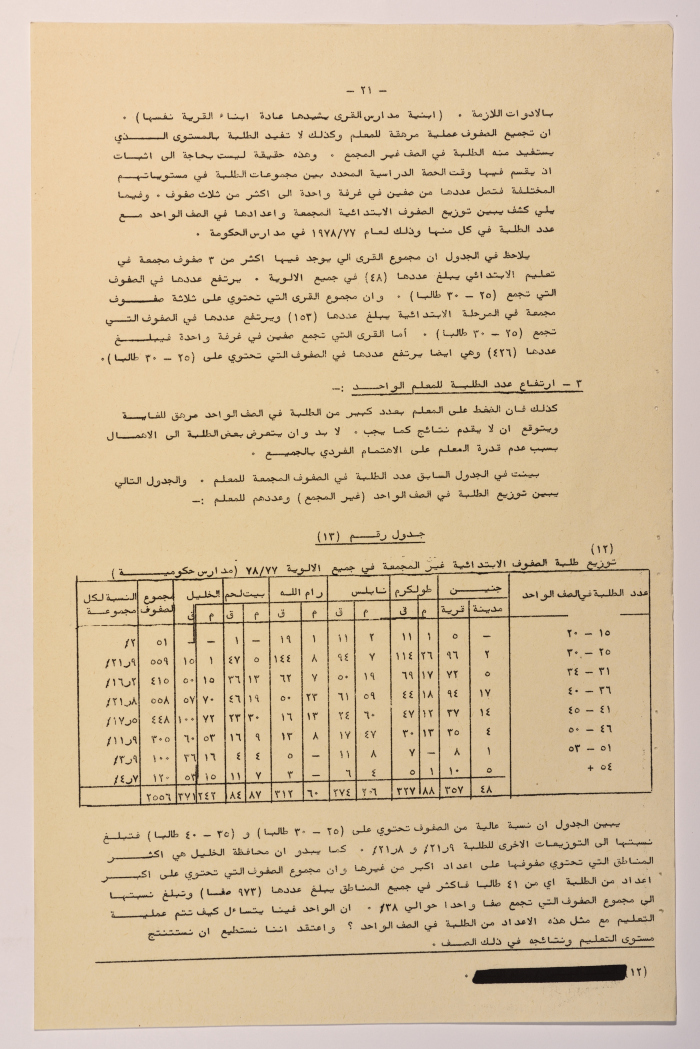 - ٢١ -
بالادوات اللازمة ٠ (ابنية مدارس القرى يشيدها عادة ابناء القرية نفسها) ٠
ان تجميع الصفوف عملية مرهقة للمعلم وكذلك لا تفيد الطلبة بالمستوى الـذي
يستفيد منه الطلبة في الصف غير المجمع ٠ وهذه حقيقة ليست بحاجة الى اثبات
اذ يقسم فيها وقت الحصة الدراسية المحدد بين مجموعات الطلبة في مستوياتهم
المختلفة فتصل عددها من صفين في غرفة واحدة الى اكثر من ثلاث صفوف ٠ وفيما
يلي كشف يبين توزيع الصفوف الابتدائية المجمعة واعدادها في الصف الواحد مع
عدد الطلبة في كل منها وذلك لعام ١٩٧٨/٧٧ في مدارس الحكومة ٠
يلاحظ في الجدول ان مجموع القرى الي يوجد فيها اكثر من ٣ صفوف مجمعة في
تعليم الابتدائي يبلغ عددها (٤٨) في جميع الالوية ٠ يرتفع عددها في الصفوف
التي تجمع (٢٥ - ٣٠ طالبا) ٠ وان مجموع القرى التي تحتوي على ثلاثة صفوف
مجمعة في المرحلة الابتدائية يبلغ عددها (١٥٣) ويرتفع عددها في الصفوف التي
تجمع (٢٥ - ٣٠ طالبا) ٠ أما القرى التي تجمع صفين في غرفة واحدة فيبلغ
عددها (٤٢٦) وهي ايضا يرتفع عددها في الصفوف التي تحتوي على (٢٥ - ٣٠ طالبا)٠
٣ - ارتفاع عدد الطلبة للمعلم الواحـد :-
كذلك فان الضغط على المعلم بعدد كبير من الطلبة في الصف الواحد مرهق للغاية
ويتوقع ان لا يقدم نتائج كما يجب ٠ لا بد وان يتعرض بعض الطلبة الى الاهمال
بسبب عدم قدرة المعلم على الاهتمام الفردي بالجميع ٠
بينت في الجدول السابق عدد الطلبة في الصفوف المجمعة للمعلم ٠ والجدول التالي
يبين توزيع الطلبة في الصف الواحد (غير المجمع) وعددهم للمعلم :-
جدول رقـم (١٣)
(١٢)
توزيع طلبة الصفوف الابتدائية غير المجمعة في جميع الالوية ٧٨/٧٧ (مدارس حكوميـة)
عدد الطلبة في الصف الواحد جنيـن طولكرم نابلس رام الله بيت لحم الخليل مجموع الصفوف النسبة لكل مجموعة
مدينة قرية م ق م ق م ق م ق م ق
١٥ - ٢٠ - ٥ ١ ١١ ٢ ١١ ١ ١٩ - ١ - ٥١ ٢٪
٢٥ - ٣٠ ٢ ٩٦ ٢٦ ١١٤ ٧ ٩٤ ٨ ١٤٤ ٥ ٤٧ ١ ١٥ ٥٥٩ ٢١٫٩٪
٣١ - ٣٤ ٥ ٧٢ ١٧ ٦٩ ١٩ ٥٠ ٧ ٦٢ ١٣ ٣٦ ١٥ ٥٠ ٤١٥ ١٦٫٢٪
٣٦ - ٤٠ ١٧ ٩٤ ١٨ ٤٤ ٥٩ ٦١ ٢٣ ٥٠ ١٩ ٤٦ ٧٠ ٥٧ ٥٥٨ ٢١٫٨٪
٤١ - ٤٥ ١٤ ٣٧ ١٢ ٤٧ ٦٠ ٢٤ ١٣ ١٦ ٣٠ ٢٣ ٧٢ ١٠٠ ٤٤٨ ١٧٫٥٪
٤٦ - ٥٠ ٤ ٣٥ ١٣ ٣٠ ٤٧ ١٧ ٨ ١٣ ١٦ ٩ ٥٣ ٦٠ ٣٠٥ ١١٫٩٪
٥١ - ٥٣ ١ ٨ - ٧ ٨ ١١ - ٥ ٤ ٤ ١٦ ٣٦ ١٠٠ ٣٫٩٪
٥٤ + ٥ ١٠ ١ ٥ ٤ ٦ - ٣ ٧ ١١ ١٥ ٥٣ ١٢٠ ٤٫٧٪
٤٨ ٣٥٧ ٨٨ ٣٢٧ ٢٠٦ ٢٧٤ ٦٠ ٣١٢ ٨٧ ٨٤ ٢٤٢ ٣٧١ ٢٥٥٦
يبين الجدول ان نسبة عالية من الصفوف تحتوي على (٢٥ - ٣٠ طالبا) و (٣٥ - ٤٠ طالبا) فتبلغ
نسبتها الى التوزيعات الاخرى للطلبة ٢١٫٩٪ و ٢١٫٨٪ ٠ كما يبدو ان محافظة الخليل هي اكثـر
المناطق التي تحتوي صفوفها على اعداد اكبر من غيرها وان مجموع الصفوف التي تحتوي على اكبـر
اعداد من الطلبة اي من ٤١ طالبا فاكثر في جميع المناطق يبلغ عددها (٩٧٣ صفا) وتبلغ نسبتها
الى مجموع الصفوف التي تجمع صفا واحدا حوالي ٣٨٪ ٠ ان الواحد فينا يتساءل كيف تتم عمليـة
التعليم مع مثل هذه الاعداد من الطلبة في الصف الواحد ؟ واعتقد اننا نستطيع ان نستنتج
مستوى التعليم ونتائجه في ذلك الصف ٠
(١٢)